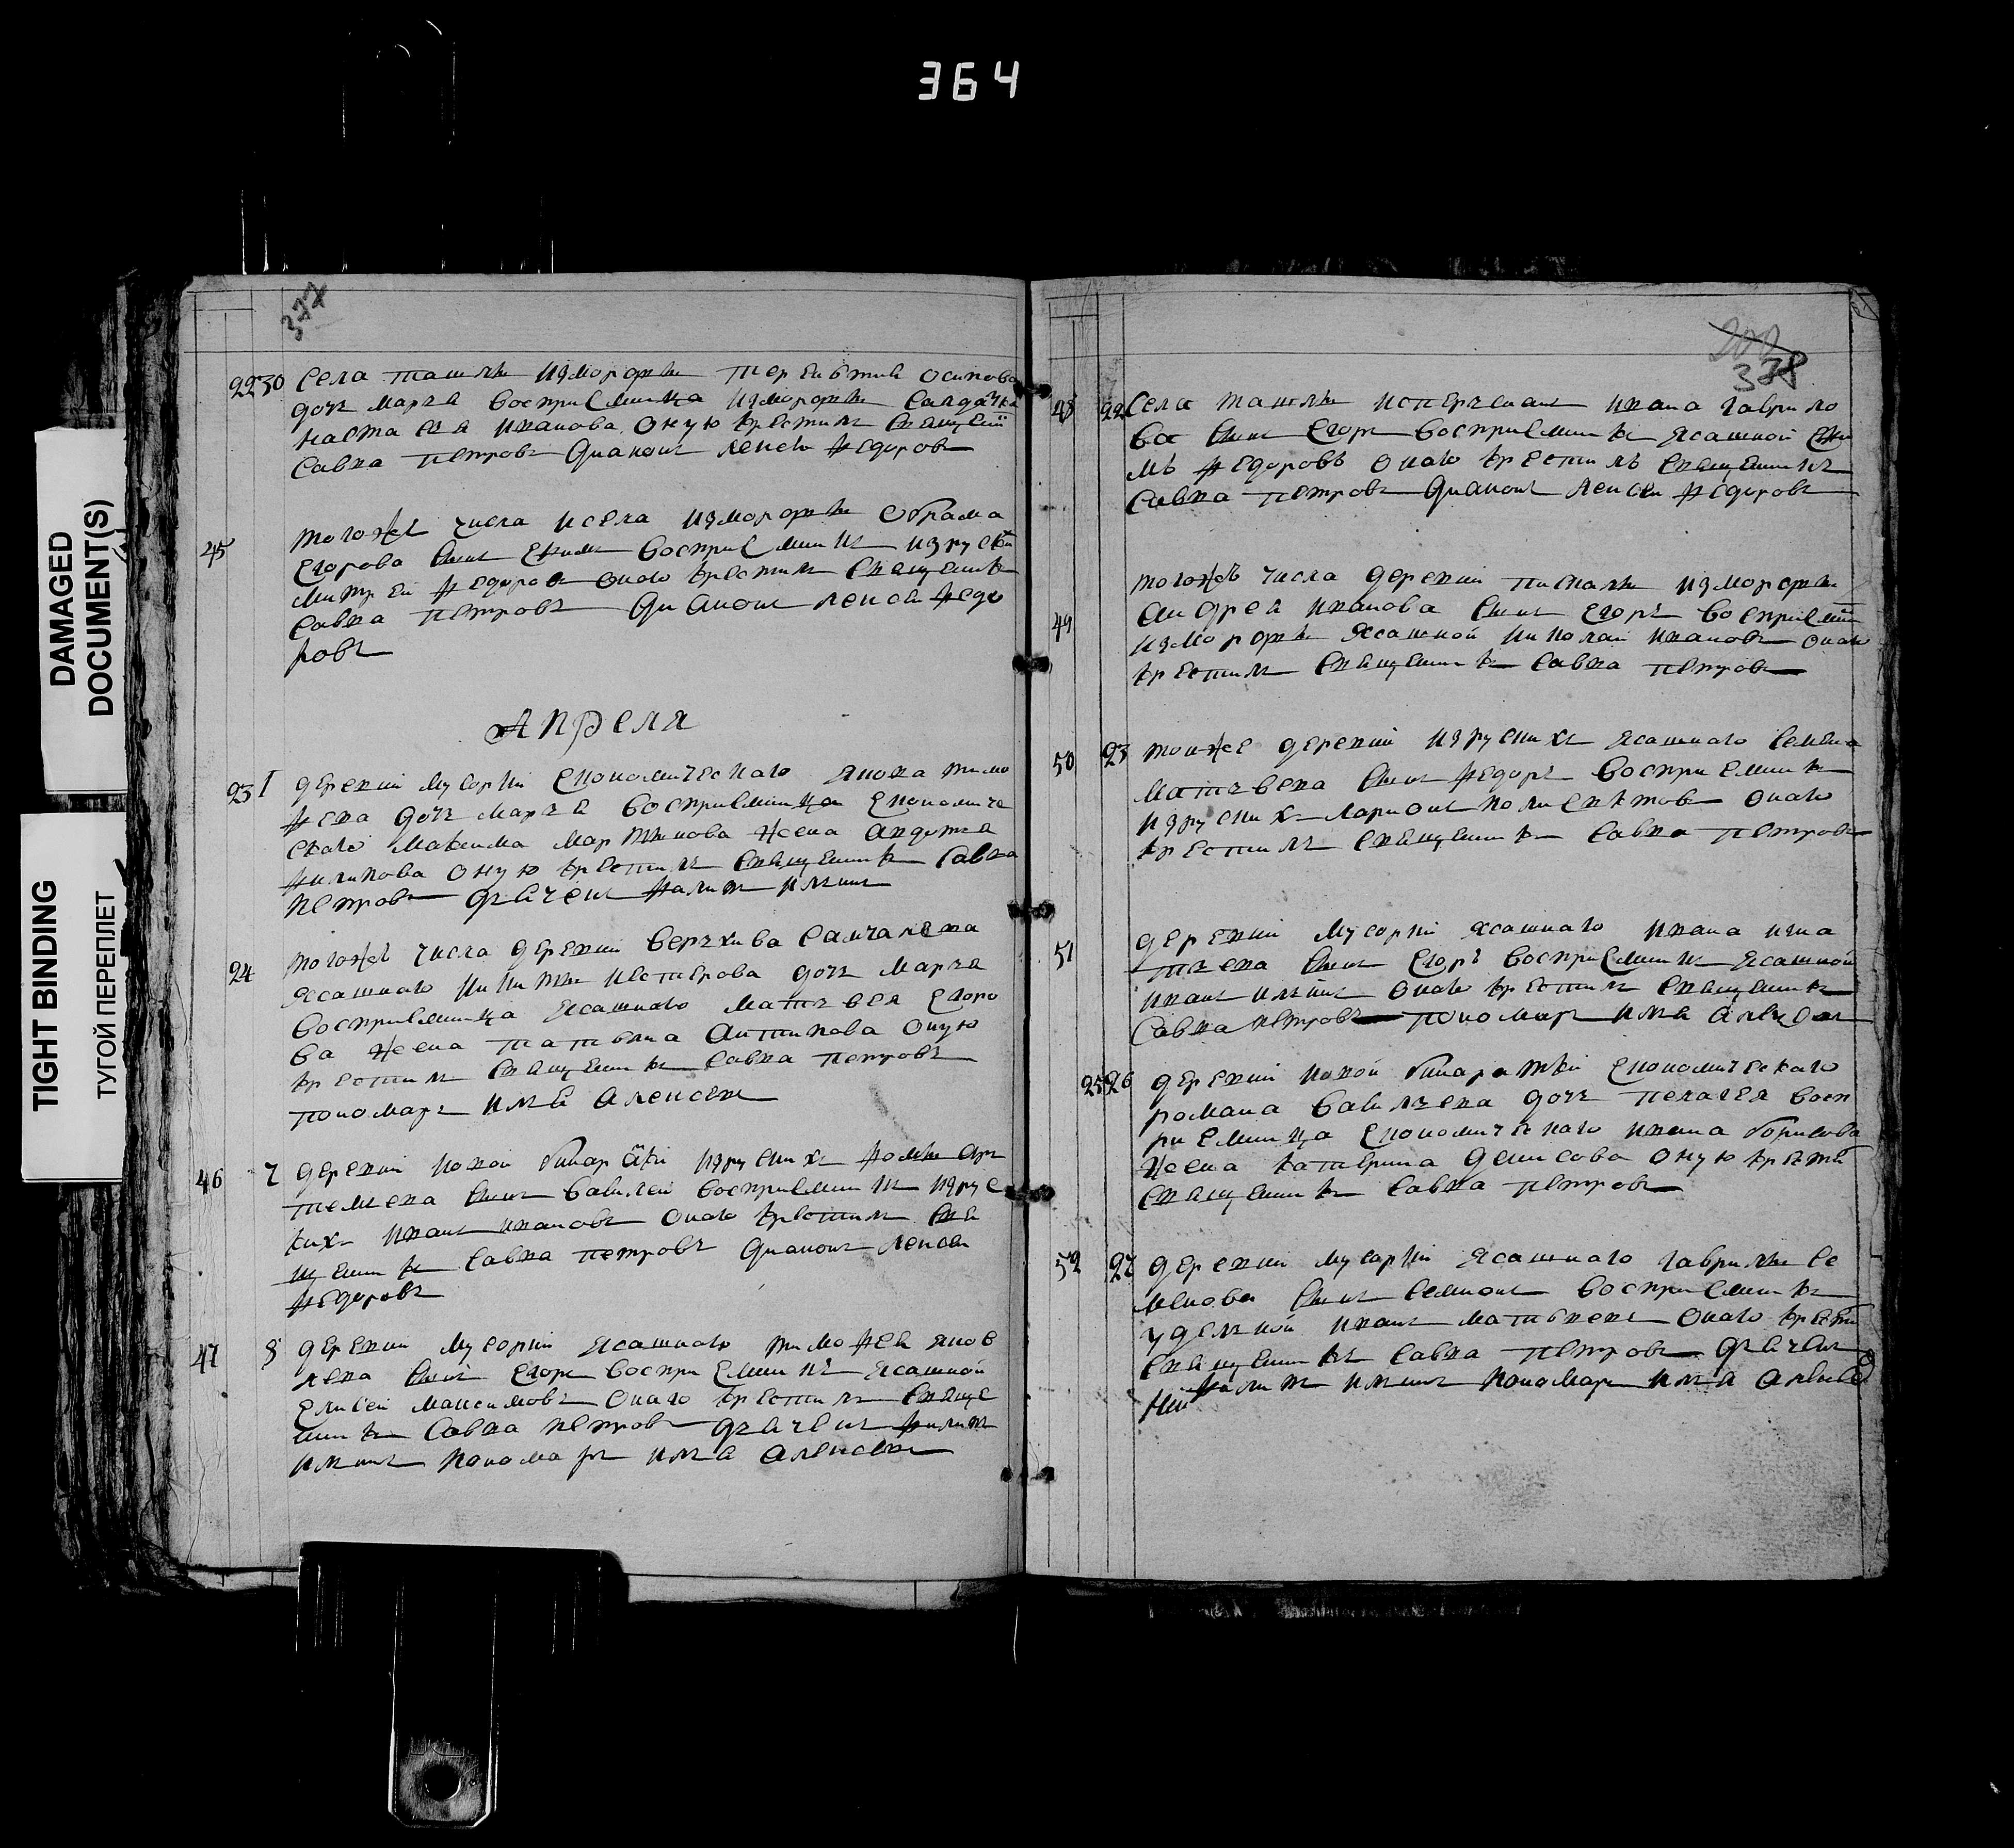 364
DAMAGED
DOCUMENT(S)
TIGHT BINDING
ТУГОЙ ПЕРЕПЛЕТ
377
22 30 Села ташлы измордвы терентия осипова
дочь марѳа восприемница измордвы салдатка
настасия иванова оную крестилъ священ
савва петровъ дияконъ алексей федоровъ
45 тогожъ числа исела измордвы абрама
егорова сынъ ефимъ восприемникъ изруски
митрей федоровъ онаго крестилъ священикъ
савва петровъ дияконъ алексей федо
ровъ
Апреля
23 1 деревни мусорки економическаго якова тимо
фева дочь марѳа восприемница економиче
скаго максима мартынова жена авдотья
филипова оную крестилъ священикъ савва
петровъ дьячекъ филипъ ильинъ
24 тогожъ числа деревни верхнева санчалеева
ясашнаго никиты нестерова дочь марѳа
восприемница ясашнаго матвея егоро
ва жена татьяна антипова оную
крестилъ священикъ савва петровъ
пономарь илья алексеевъ
46 7 деревни новой бинаратки изруских фомы ар
темьева сынъ василей восприемникъ изрус
ких иванъ ивановъ онаго крестилъ свя
щеникъ савва петровъ дияконъ алексей
федоровъ
47 8 деревни мусорки ясашнаго тимофея яков
лева сынъ егоръ восприемникъ ясашной
елисей максимовъ онаго крестилъ свяще
никъ савва петровъ дьячекъ филипъ
ильинъ пономарь илья алексеевъ
378
48 22 Села ташлы исперекшанъ ивана гаврило
ва сынъ егоръ восприемникъ ясашной
федоровъ онаго крестилъ священикъ
савва петровъ дияконъ алексей федоровъ
49 тогожъ числа деревни пискалы измордвы
андрея иванова сынъ егоръ восприемни
измордвы ясашной николай ивановъ онаго
крестилъ священикъ савва петровъ
50 23 тойже деревни изруских ясашнаго семена
матвеева сынъ федоръ восприемникъ
изруских ларионъ полиектовъ онаго
крестилъ священикъ савва петровъ
51 деревни мусорки ясашнаго ивана игна
тьева сынъ егоръ восприемникъ ясашной
иванъ ильинъ онаго крестилъ священикъ
савва петровъ пономарь илья алексеевъ
25 26 деревни новой бинаратки економическаго
романа васильева дочь пелагея восп
риемница економическаго ивана борисова
жена катерина денисова оную крести
священикъ савва петровъ
52 27 деревни мусорки ясашнаго гаврилы се
менова сынъ семионъ восприемникъ
удельной иванъ матвеевъ онаго крести
священикъ савва петровъ дьячекъ
филипъ ильинъ пономарь илья алексе